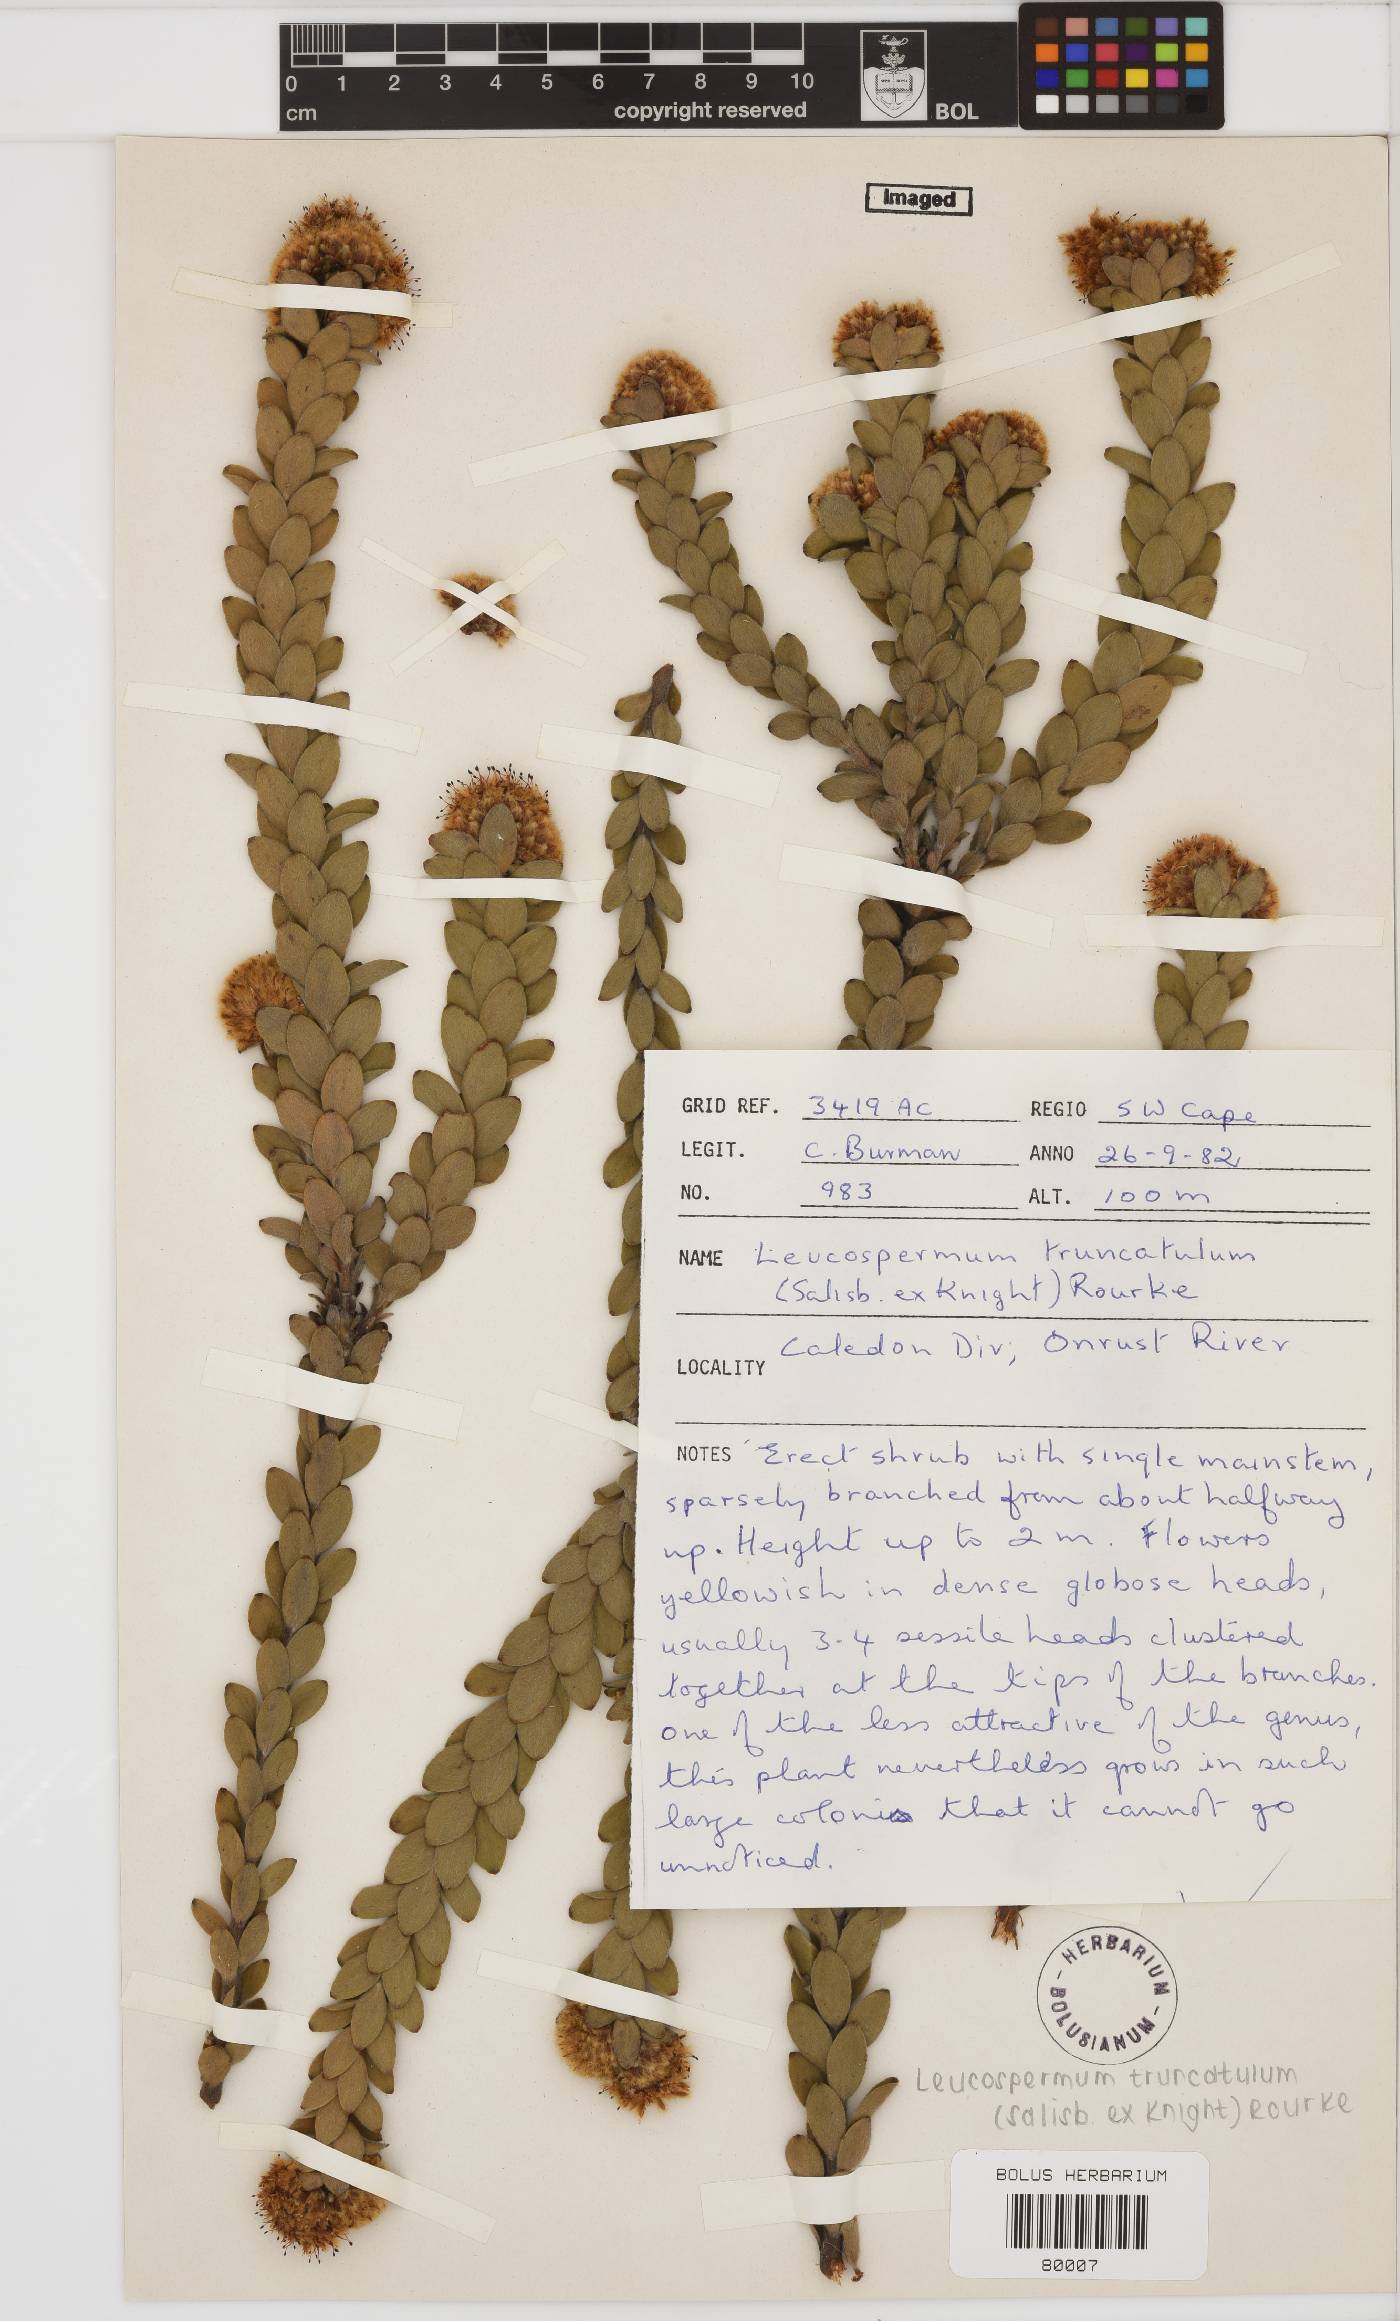 0 1 2 3 4 5 6 7 8 9 10
cm copyright reserved BOL
Imaged
GRID REF. 3419 AC REGIO SW Cape
LEGIT. C. Burman ANNO 26-9-82
NO. 983 ALT. 100 m
NAME Leucospermum truncatulum
(Salisb. ex Knight) Rourke
LOCALITY Caledon Div; Onrust River
NOTES Erect shrub with single mainstem,
sparsely branched from about halfway
up. Height up to 2 m. Flowers
yellowish in dense globose heads,
usually 3-4 sessile heads clustered
together at the tips of the branches.
one of the less attractive of the genus,
this plant nevertheless grows in such
large colonies that it cannot go
unnoticed.
- HERBARIUM -
BOLUSIANUM
Leucospermum truncatulum
(Salisb. ex Knight) Rourke
BOLUS HERBARIUM
80007